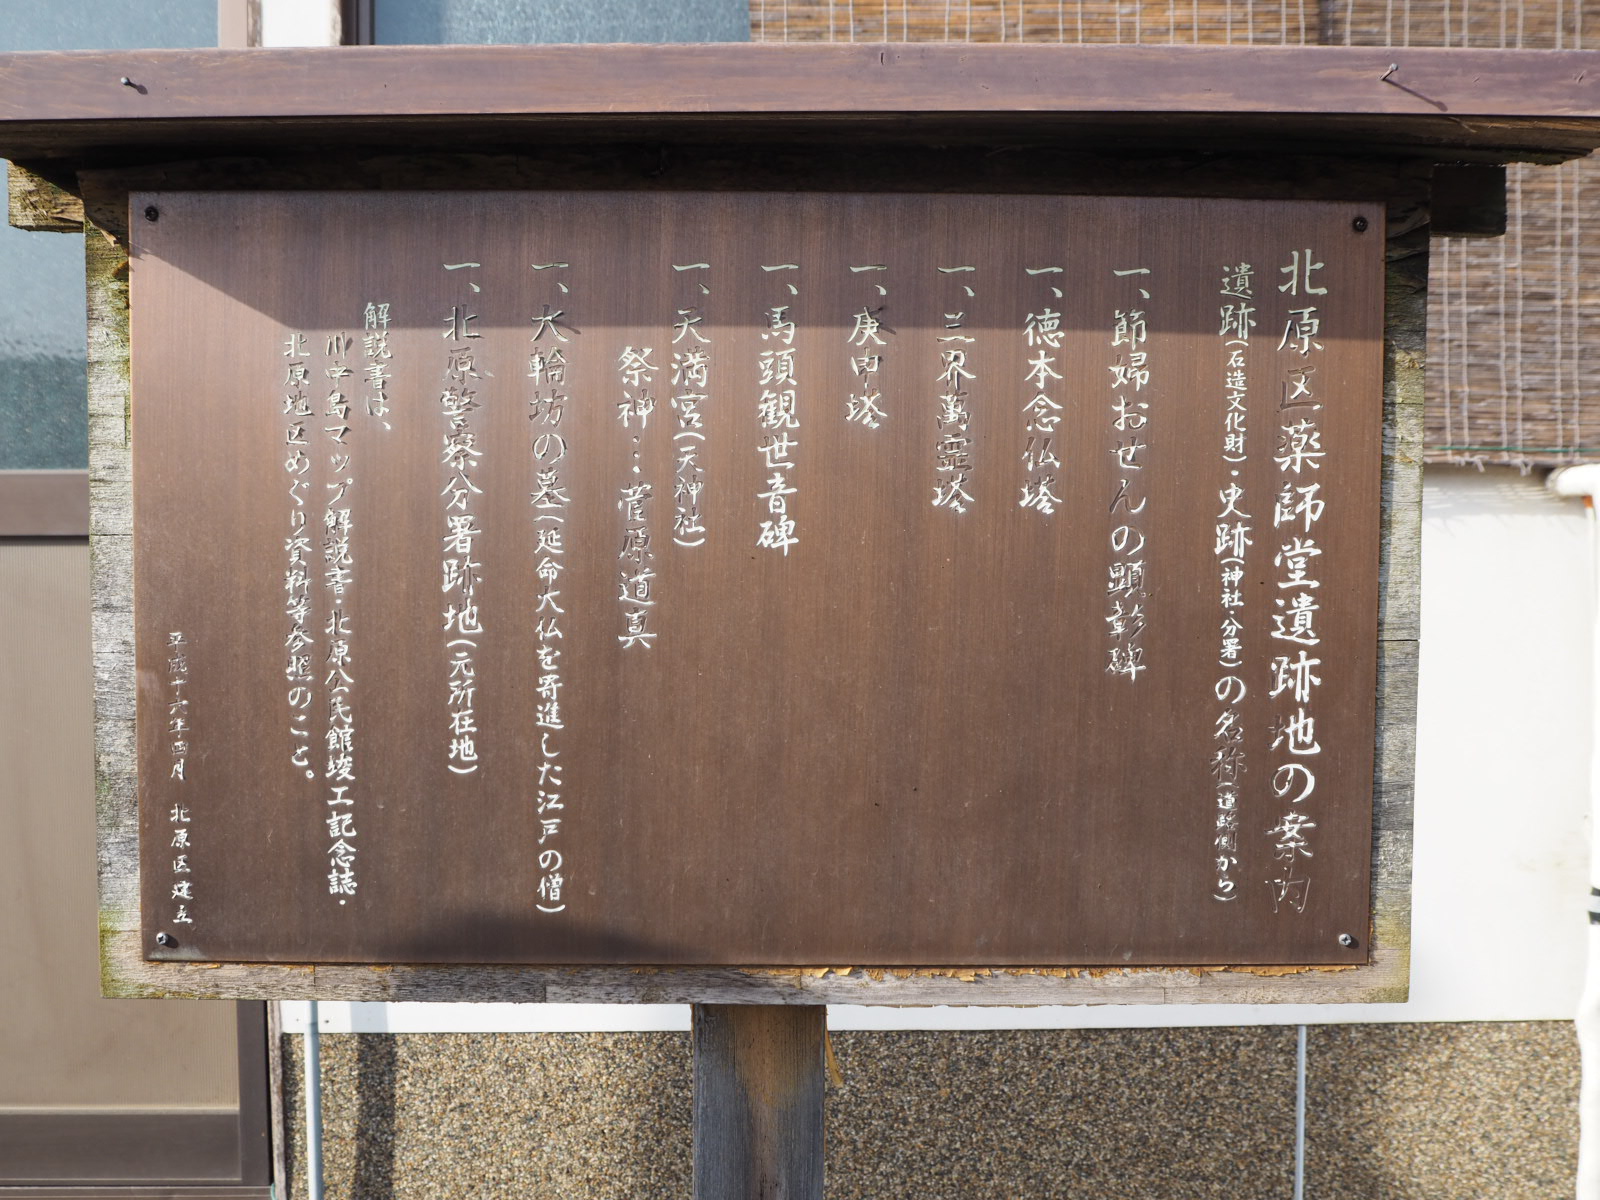 北原区薬師堂遺跡地の案内
遺跡(石造文化財)・史跡(神社・分署)の名称(道路側から)
一、節婦おせんの顕彰碑
一、徳本念仏塔
一、三界萬霊塔
一、庚申塔
一、馬頭観世音碑
一、天満宮(天神社)
祭神…菅原道真
一、大輪坊の墓(延命大仏を寄進した江戸の僧)
一、北原警察分署跡地(元所在地)
解説書は、
川中島マップ解説書・北原公民館竣工記念誌・
北原地区めぐり資料等参照のこと。
平成十六年四月 北原区建立